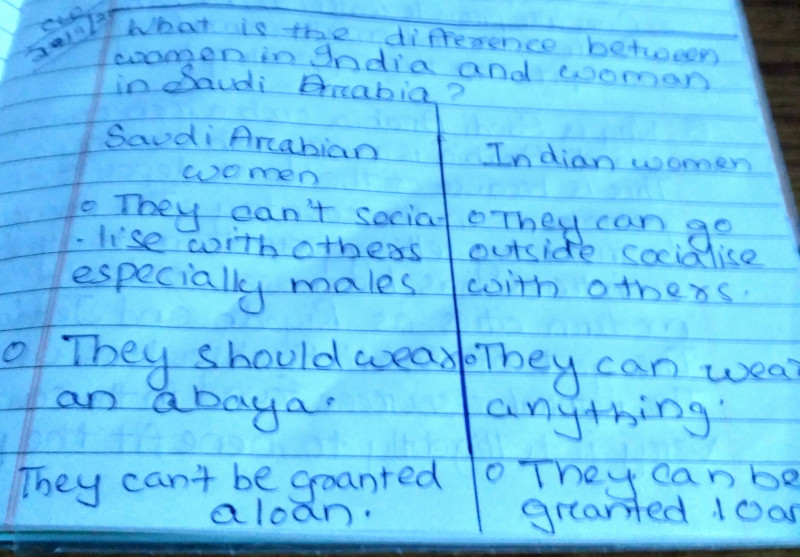 What is the difference between
women in India and woman
in Saudi Arabia?
Saudi Arabian
women
o They can't socia-
lise with others
especially males
o They should wear
an abaya.
They can't be granted
a loan.
Indian women
o They can go
outside socialise
with others.
o They can wear
anything.
o They can be
granted loan